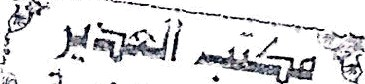 مكتب المدير